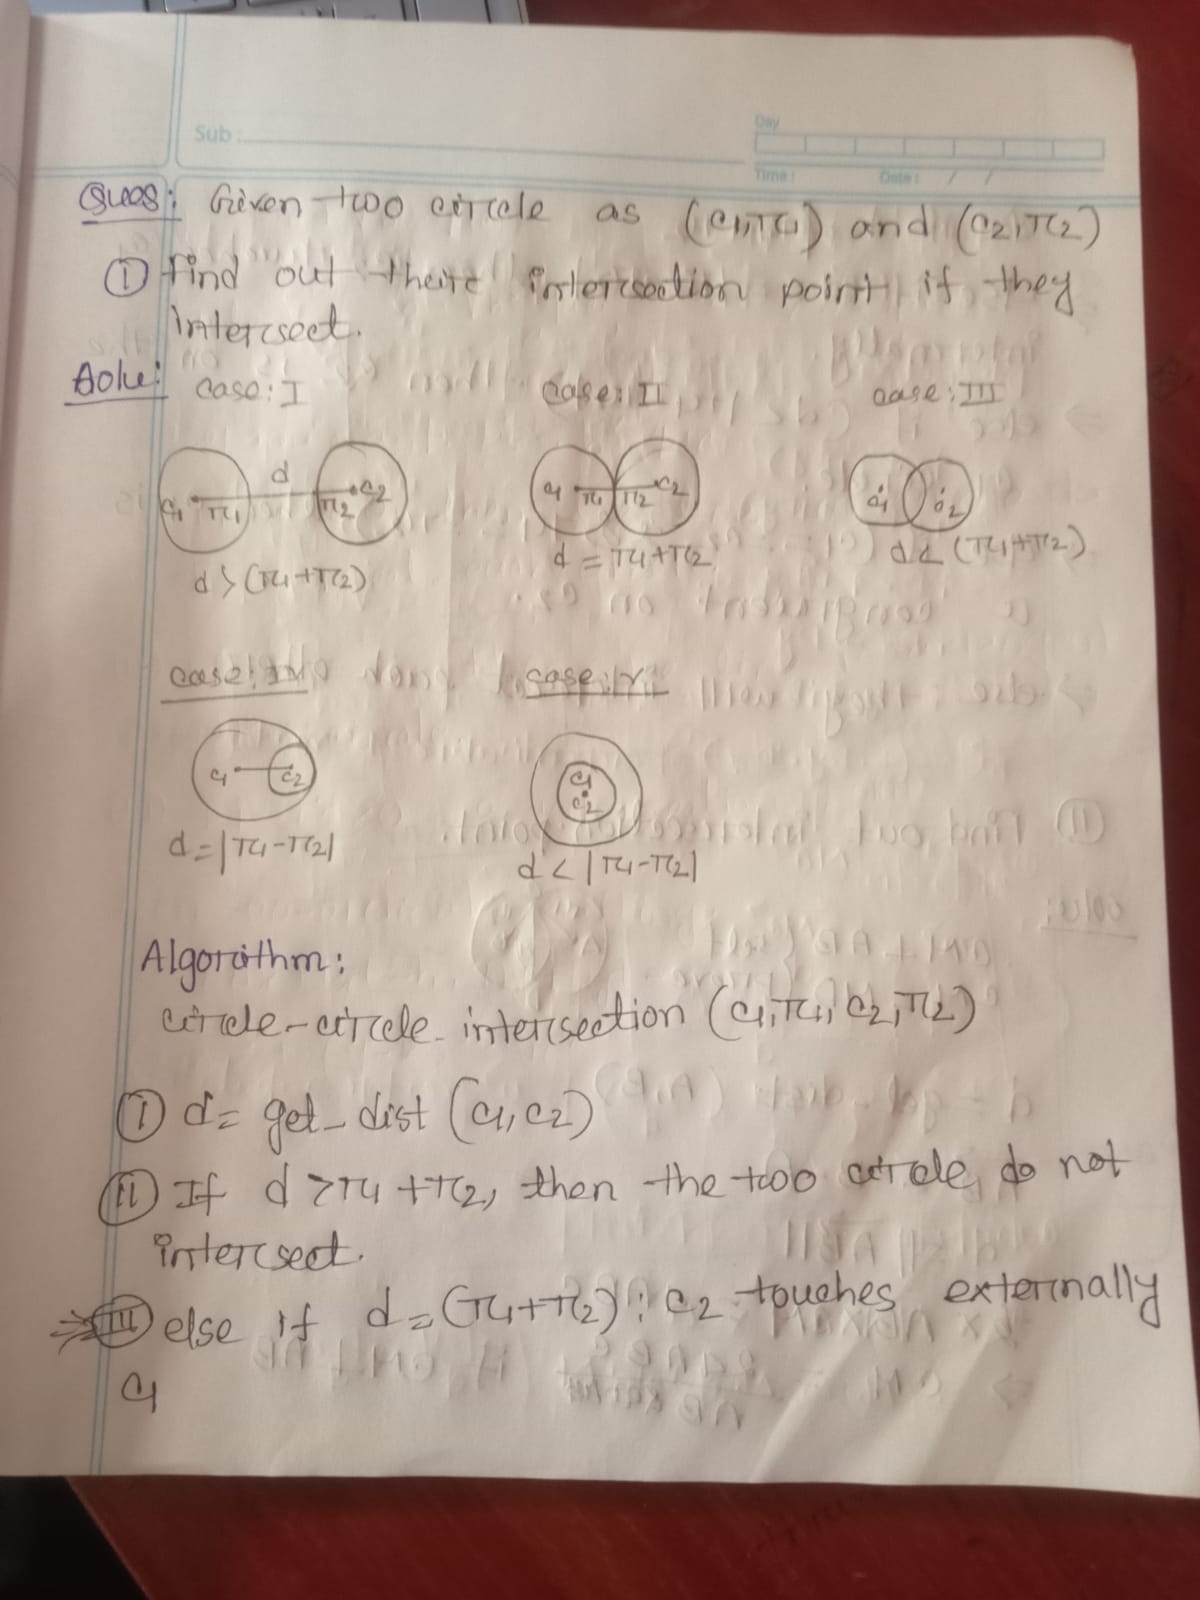 Sub:
Day
Time:
Date: / /
Ques: Given two circle as (c1,r1) and (c2,r2)
① Find out their intersection point if they
intersect.
Solu:
case: I
case: II
case: III
c1 r1 d r2 c2
c1 r1 r2 c2
c1 c2
d > (r1+r2)
d = r1+r2
d < (r1+r2)
case: IV
case: V
c1 c2
c1
c2
d = |r1-r2|
d < |r1-r2|
Algorithm:
circle-circle-intersection (c1,r1, c2,r2)
Ⓘ d = get_dist (c1, c2)
(II) If d > r1 + r2, then the two circle do not
intersect.
⇒ (III) else if d = (r1+r2) : c2 touches externally
c1